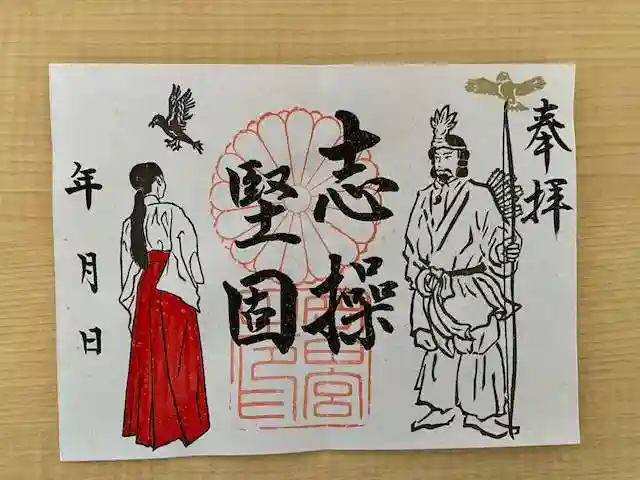 奉拝
志操
堅固
年月日